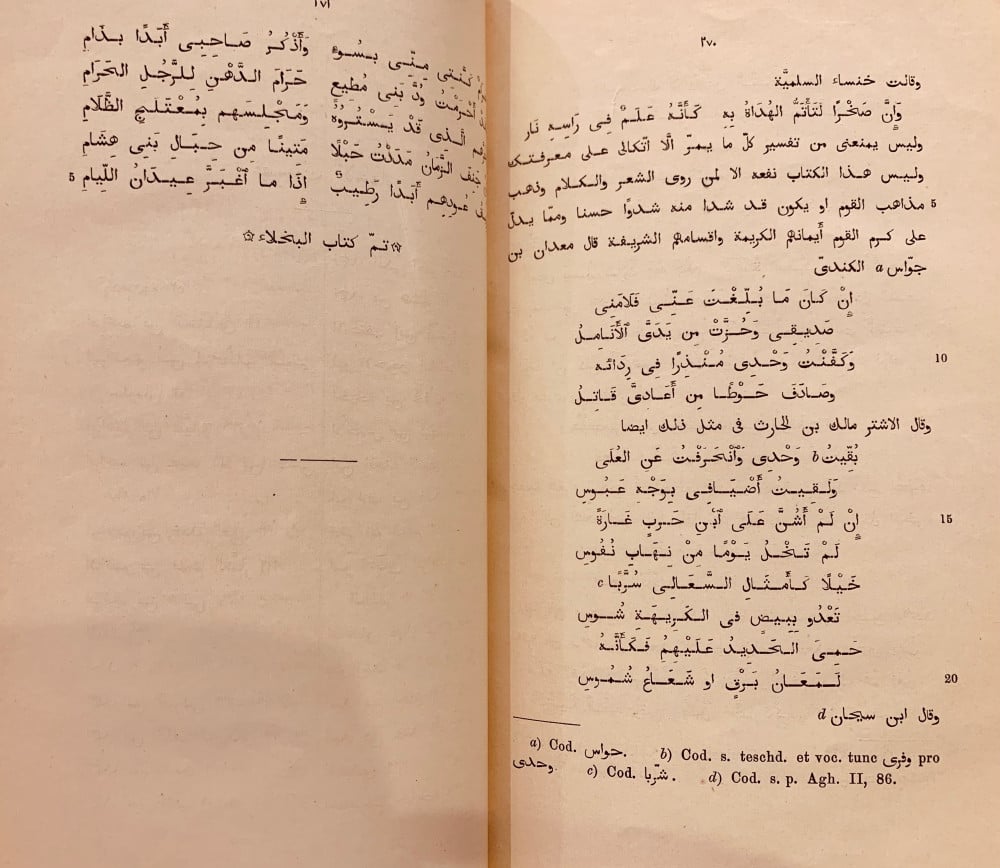 ٢٧٠
وقالت خنساء السلميَّة
وَإِنَّ صَخْرًا لَتَأْتَمُّ الهُدَاةُ بِهِ كَأَنَّهُ عَلَمٌ فِى رَاسِهِ نَار
وليس يمنعنى من تفسير كلّ ما يمرّ الّا اتكالى على معرفتك
وليس هذا الكتاب نفعه الا لمن روى الشعر والكلام وذهب
مذاهب القوم او يكون قد شدا منه شدوًا حسنا وممّا يدلّ 5
على كرم القوم أيمانهم الكريمة واقسامهم الشريفة قال معدان بن
جوّاس a الكندىّ
إِنْ كَانَ مَا بُلِّغْتَ عَنِّى فَلَامَنِى
صَدِيقِى وَحُزَّتْ مِن يَدَىَّ ٱلأَنَامِلُ
وَكَفَّنْتُ وَحْدِى مُنْذِرًا فِى رِدَائه 10
وصَادَفَ حَوْطًا مِن أَعَادِىَّ قَاتِلُ
وقال الاشتر مالك بن الحارث فى مثل ذلك ايضا
بُقِّيتُ b وَحْدِى وَٱنْحَرَفْتُ عَنِ العُلَى
وَلَقِيتُ أَضْيَافِى بِوَجْهِ عَبُوسِ
إِنْ لَمْ أَشُنَّ عَلَى ٱبْنِ حَربٍ غَارَةً 15
لَمْ تَخْلُ يَوْمًا مِنْ نِهَابِ نُفُوسِ
خَيْلًا كَأَمْثَالِ السَّعَالِى سُرَّبًا c
تَعْدُو بِبِيضٍ فى الكَرِيهَةِ شُوسِ
حَمِىَ الحَدِيدُ عَلَيْهِمُ فَكَأَنَّهُ
لَمَعَانُ بَرْقٍ او شَعَاعُ شُمُوسِ 20
وقال ابن سيحان d
a) Cod. حواس. b) Cod. s. teschd. et voc. tunc وفرى pro
وحدى. c) Cod. شرّبا. d) Cod. s. p. Agh. II, 86.
٢٧١
مِنِّى بِسُوء وَأَذْكُرُ صَاحِبِى أَبَدًا بذَامِ
بَنِى مُطِيع حَرَامَ الدَّهْنِ لِلرَّجُلِ الحَرَامِ
الَّذى قَدْ يَسْتُرُوهُ وَمَجْلِسَهم بِمُعْتَلِجِ الظَّلَامِ
الزَّمَانُ مَدَدْتُ حَبْلًا مَتينًا مِن حِبَالِ بَنِى هِشَامِ
عُودهم أَبَدًا رَطِيبٌ اذَا ما ٱغْبَرَّ عِيدَانُ اللِّيَامِ 5
تمّ كتاب البخلاء